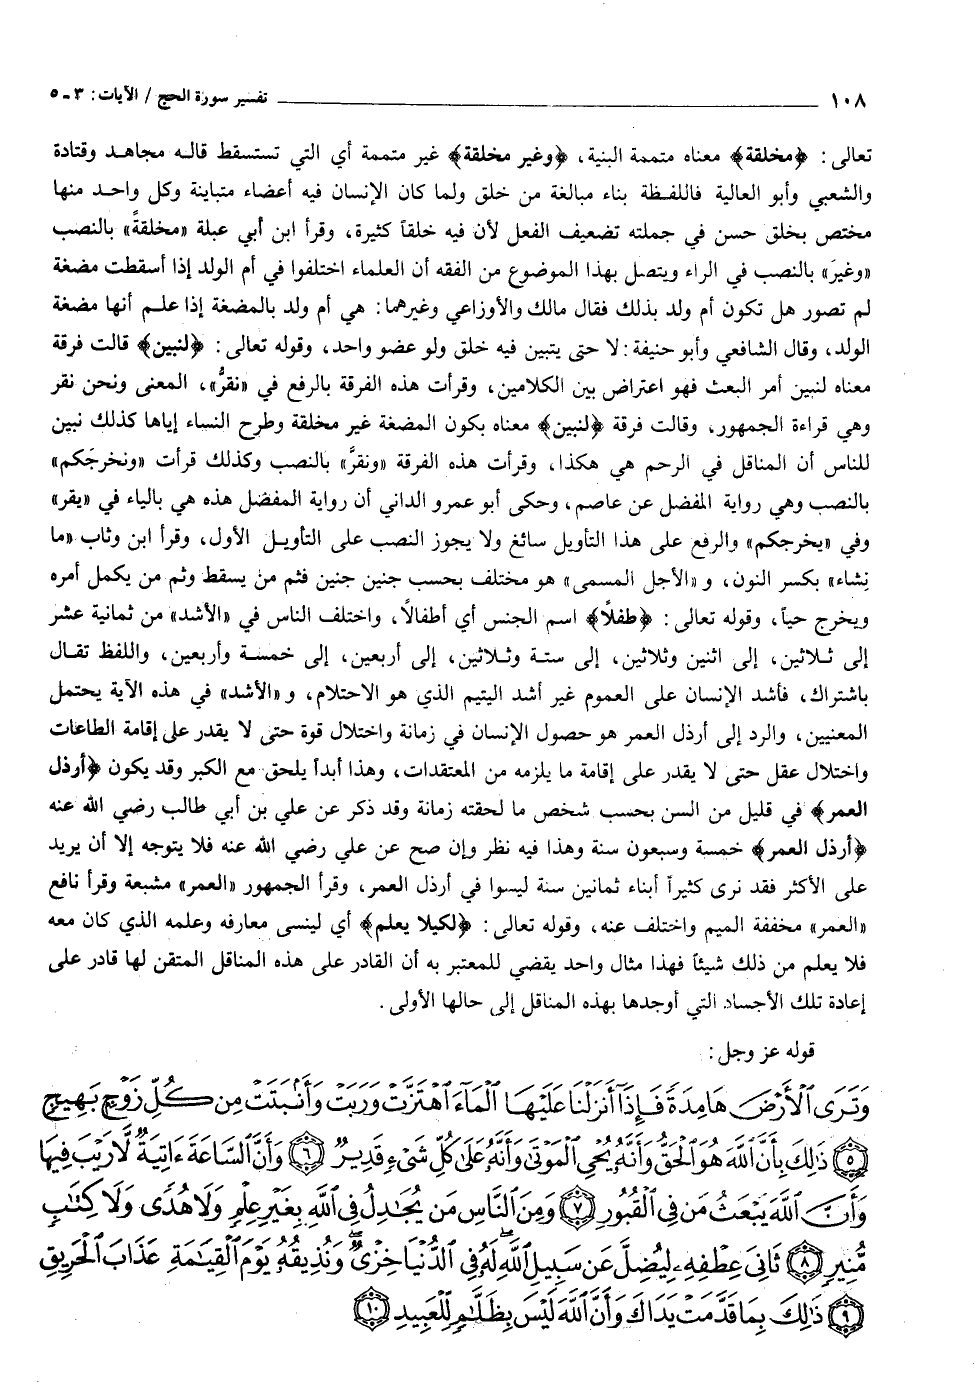 ١٠٨ ــــــــــــــــــــ تفسير سورة الحج / الآيات: ٣ ـ ٥
تعالى: ﴿مخلقة﴾ معناه متممة البنية، ﴿وغير مخلقة﴾ غير متممة أي التي تستسقط قاله مجاهد وقتادة
والشعبي وأبو العالية فاللفظة بناء مبالغة من خلق ولما كان الإنسان فيه أعضاء متباينة وكل واحد منها
مختص بخلق حسن في جملته تضعيف الفعل لأن فيه خلقاً كثيرة، وقرأ ابن أبي عبلة «مخلقةً» بالنصب
«وغيرَ» بالنصب في الراء ويتصل بهذا الموضوع من الفقه أن العلماء اختلفوا في أم الولد إذا أسقطت مضغة
لم تصور هل تكون أم ولد بذلك فقال مالك والأوزاعي وغيرهما: هي أم ولد بالمضغة إذا علم أنها مضغة
الولد، وقال الشافعي وأبو حنيفة: لا حتى يتبين فيه خلق ولو عضو واحد، وقوله تعالى: ﴿لنبين﴾ قالت فرقة
معناه لنبين أمر البعث فهو اعتراض بين الكلامين، وقرأت هذه الفرقة بالرفع في «نقرُّ»، المعنى ونحن نقر
وهي قراءة الجمهور، وقالت فرقة ﴿لنبين﴾ معناه بكون المضغة غير مخلقة وطرح النساء إياها كذلك نبين
للناس أن المناقل في الرحم هي هكذا، وقرأت هذه الفرقة «ونقرَّ» بالنصب وكذلك قرأت «ونخرجَكم»
بالنصب وهي رواية المفضل عن عاصم، وحكى أبو عمرو الداني أن رواية المفضل هذه هي بالياء في «يقر»
وفي «يخرجكم» والرفع على هذا التأويل سائغ ولا يجوز النصب على التأويل الأول، وقرأ ابن وثاب «ما
نِشاء» بكسر النون، و «الأجل المسمى» هو مختلف بحسب جنين جنين فثم من يسقط وثم من يكمل أمره
ويخرج حياً، وقوله تعالى: ﴿طفلًا﴾ اسم الجنس أي أطفالًا، واختلف الناس في «الأشد» من ثمانية عشر
إلى ثلاثين، إلى اثنين وثلاثين، إلى ستة وثلاثين، إلى أربعين، إلى خمسة وأربعين، واللفظ تقال
باشتراك، فأشد الإنسان على العموم غير أشد اليتيم الذي هو الاحتلام، و «الأشد» في هذه الآية يحتمل
المعنيين، والرد إلى أرذل العمر هو حصول الإنسان في زمانة واختلال قوة حتى لا يقدر على إقامة الطاعات
واختلال عقل حتى لا يقدر على إقامة ما يلزمه من المعتقدات، وهذا أبداً يلحق مع الكبر وقد يكون ﴿أرذل
العمر﴾ في قليل من السن بحسب شخص ما لحقته زمانة وقد ذكر عن علي بن أبي طالب رضي الله عنه
﴿أرذل العمر﴾ خمسة وسبعون سنة وهذا فيه نظر وإن صح عن علي رضي الله عنه فلا يتوجه إلا أن يريد
على الأكثر فقد نرى كثيراً أبناء ثمانين سنة ليسوا في أرذل العمر، وقرأ الجمهور «العمر» مشبعة وقرأ نافع
«العمر» مخففة الميم واختلف عنه، وقوله تعالى: ﴿لكيلا يعلم﴾ أي لينسى معارفه وعلمه الذي كان معه
فلا يعلم من ذلك شيئاً فهذا مثال واحد يقضي للمعتبر به أن القادر على هذه المناقل المتقن لها قادر على
إعادة تلك الأجساد التي أوجدها بهذه المناقل إلى حالها الأولى.
قوله عز وجل:
وَتَرَى ٱلْأَرْضَ هَامِدَةً فَإِذَآ أَنزَلْنَا عَلَيْهَا ٱلْمَآءَ ٱهْتَزَّتْ وَرَبَتْ وَأَنۢبَتَتْ مِن كُلِّ زَوْجٍۭ بَهِيجٍ
﴿٥﴾ ذَٰلِكَ بِأَنَّ ٱللَّهَ هُوَ ٱلْحَقُّ وَأَنَّهُۥ يُحْىِ ٱلْمَوْتَىٰ وَأَنَّهُۥ عَلَىٰ كُلِّ شَىْءٍ قَدِيرٌ ﴿٦﴾ وَأَنَّ ٱلسَّاعَةَ ءَاتِيَةٌ لَّا رَيْبَ فِيهَا
وَأَنَّ ٱللَّهَ يَبْعَثُ مَن فِى ٱلْقُبُورِ ﴿٧﴾ وَمِنَ ٱلنَّاسِ مَن يُجَٰدِلُ فِى ٱللَّهِ بِغَيْرِ عِلْمٍ وَلَا هُدًى وَلَا كِتَٰبٍ
مُّنِيرٍ ﴿٨﴾ ثَانِىَ عِطْفِهِۦ لِيُضِلَّ عَن سَبِيلِ ٱللَّهِ ۖ لَهُۥ فِى ٱلدُّنْيَا خِزْىٌ ۖ وَنُذِيقُهُۥ يَوْمَ ٱلْقِيَٰمَةِ عَذَابَ ٱلْحَرِيقِ
﴿٩﴾ ذَٰلِكَ بِمَا قَدَّمَتْ يَدَاكَ وَأَنَّ ٱللَّهَ لَيْسَ بِظَلَّٰمٍ لِّلْعَبِيدِ ﴿١٠﴾